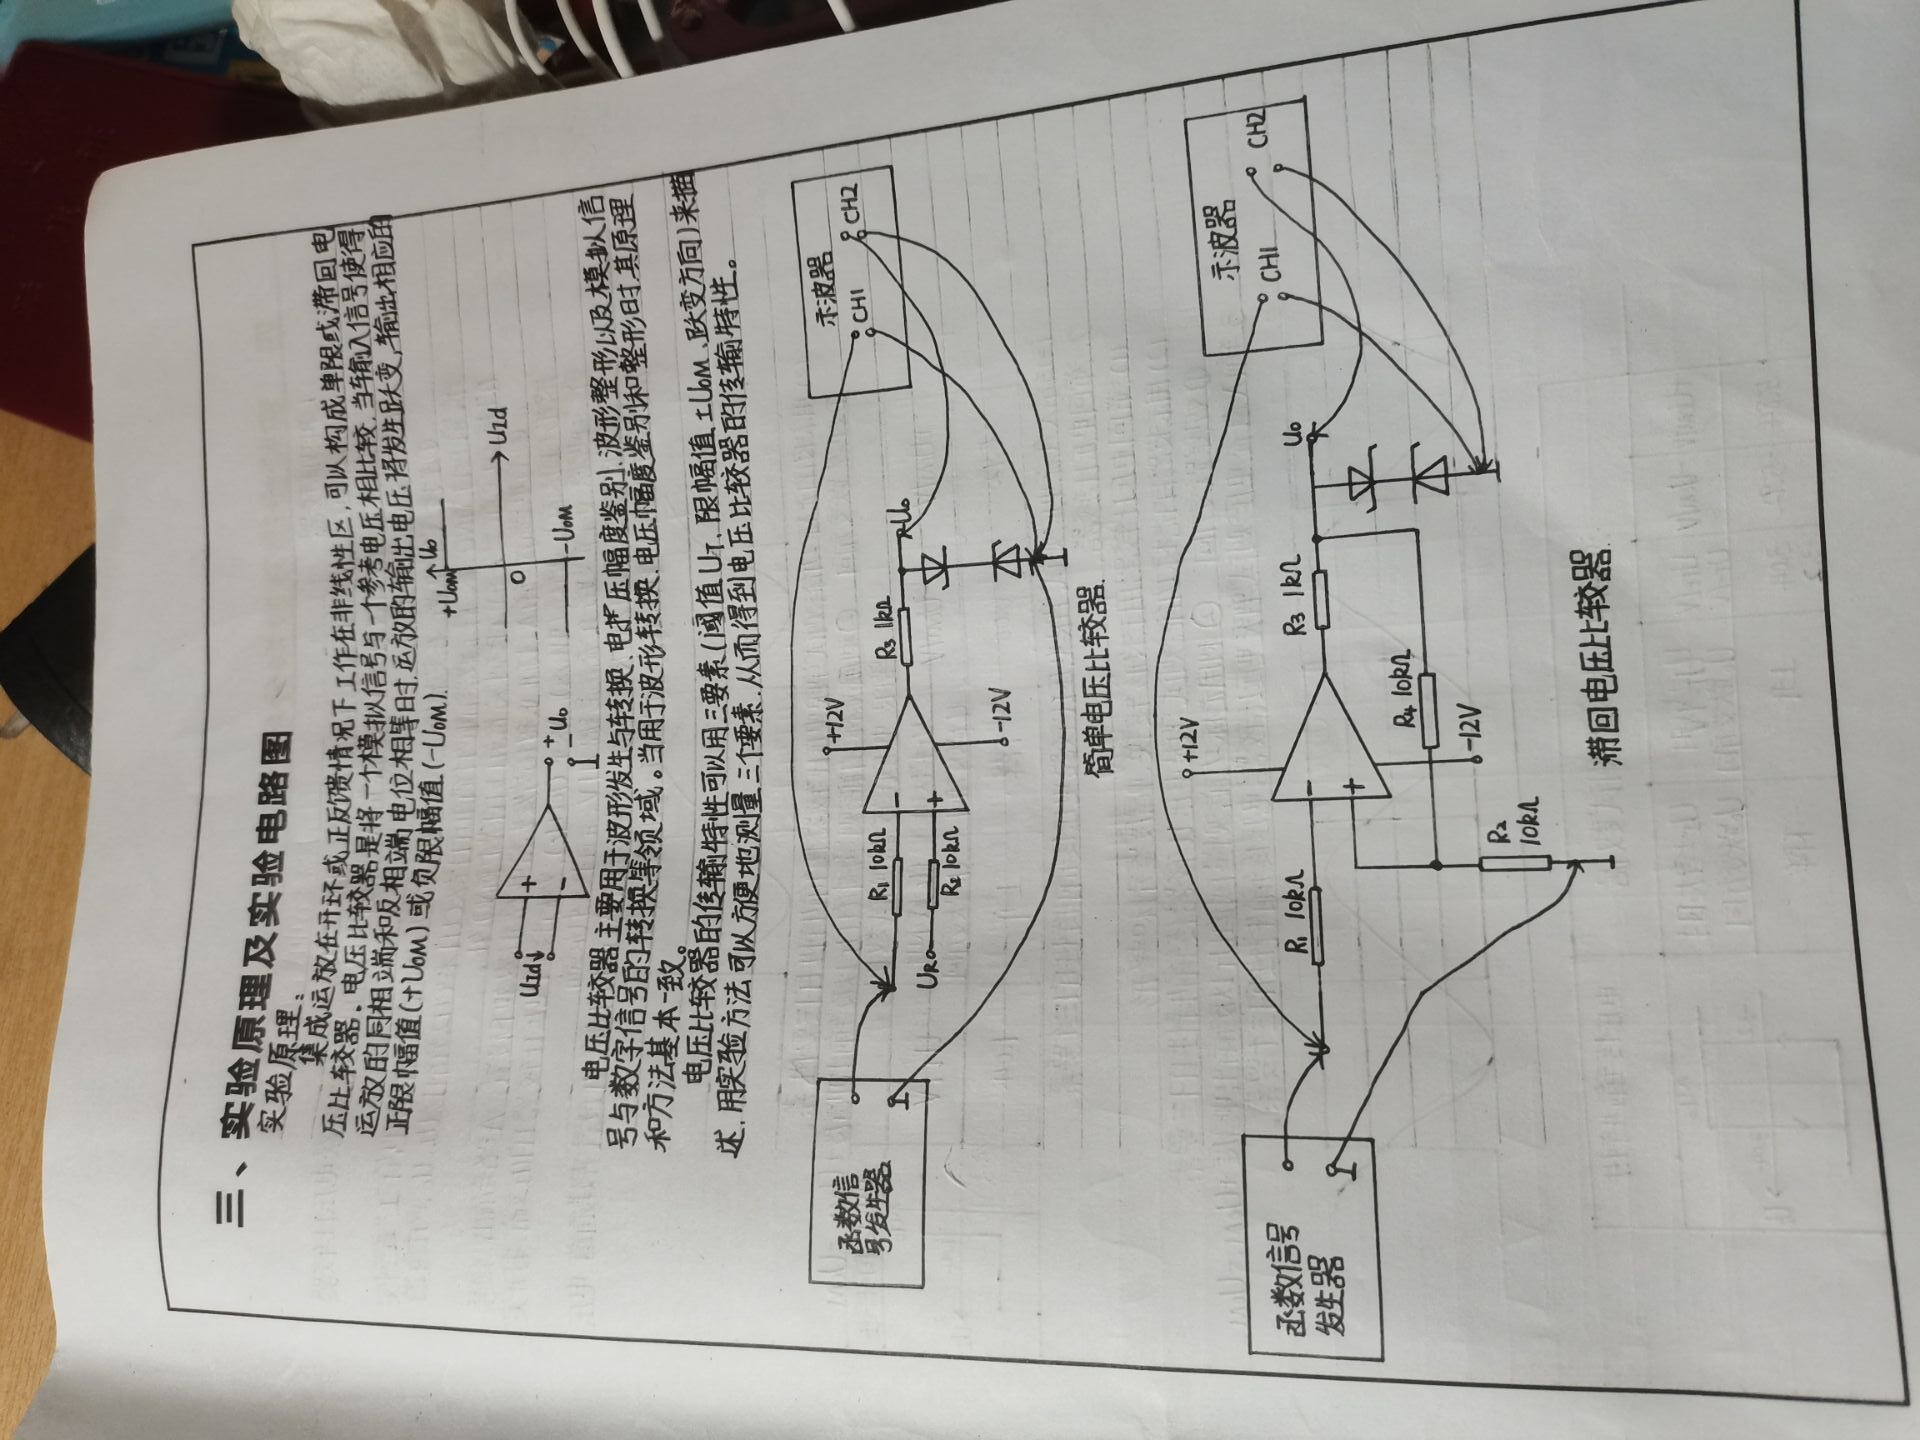 三、实验原理及实验电路图
实验原理:
集成运放在开环或正反馈情况下工作在非线性区,可以构成单限或滞回电
压比较器。电压比较器是将一个模拟信号与一个参考电压相比较,当输入信号使得
运放的同相端和反相端电位相等时,运放的输出电压将发生跃变,输出相应的
正限幅值(+UOM)或负限幅值(-UOM).
+UOM
Uo
UId
O
-UOM
UId
+
-
+
-
Uo
电压比较器主要用于波形发生与转换、电压幅度鉴别、波形整形以及模拟信
号与数字信号的转换等领域。当用于波形转换、电压幅度鉴别和整形时,其原理
和方法基本一致。
电压比较器的传输特性可以用三要素(阈值UT、限幅值±UOM、跃变方向)来描
述,用实验方法可以方便地测量三个要素,从而得到电压比较器的传输特性。
函数信
号发生器
+12V
R1 10kΩ
-
UR
R2 10kΩ
+
-12V
R3 1kΩ
Uo
示波器
CH1
CH2
简单电压比较器.
函数信号
发生器
+12V
R1 10kΩ
-
+
R3 1kΩ
Uo
R4 10kΩ
-12V
R2
10kΩ
示波器
CH1
CH2
滞回电压比较器.